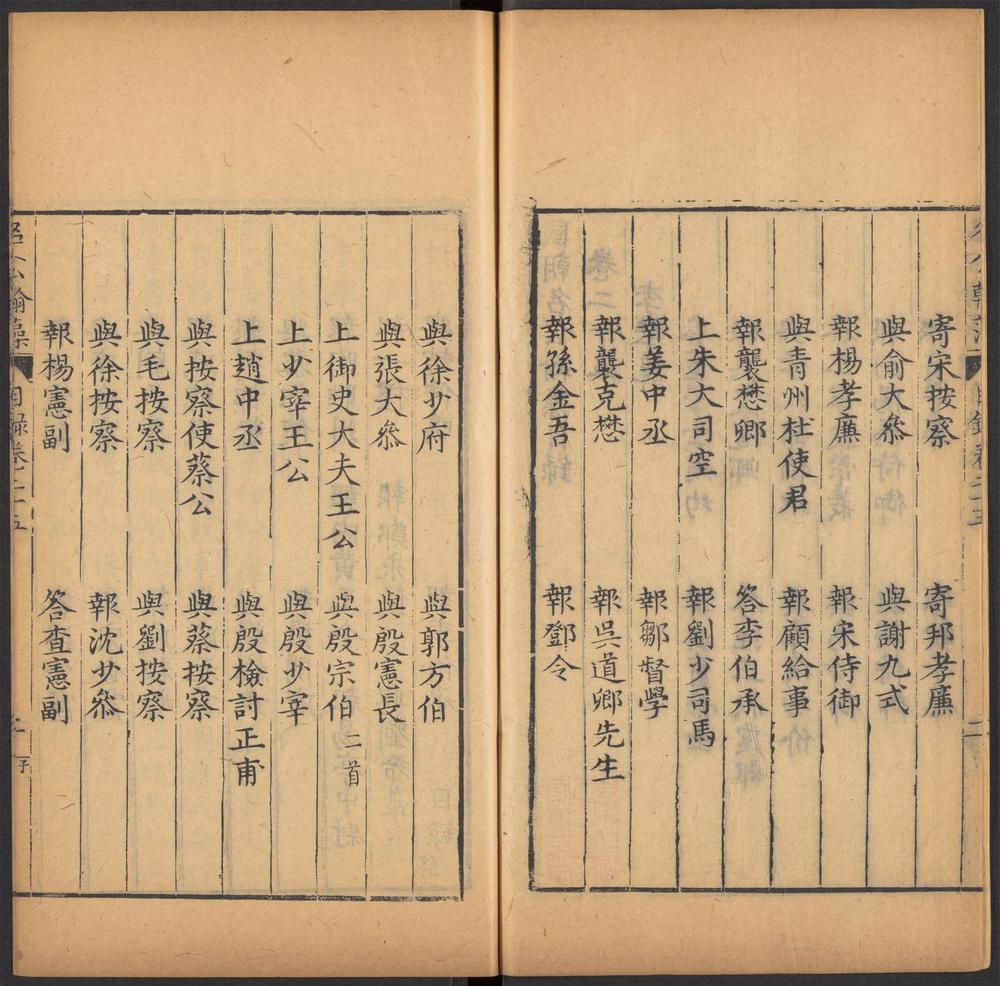 寄宋按察　寄邦孝廉
與俞大叅　與謝九式
報楊孝廉　報宋侍御
與青州杜使君　報顧給事
報龔懋卿　答李伯承
上朱大司空　報劉少司馬
報姜中丞　報鄒督學
報龔克懋　報吳道卿先生
報孫金吾　報鄧令
與徐少府　與郭方伯
與張大叅　與殷憲長
上御史大夫王公　與殷宗伯二首
上少宰王公　與殷少宰
上趙中丞　與殷檢討正甫
與按察使蔡公　與蔡按察
與毛按察　與劉按察
與徐按察　報沈少叅
報楊憲副　答查憲副
名公翰藻　目錄卷二十五